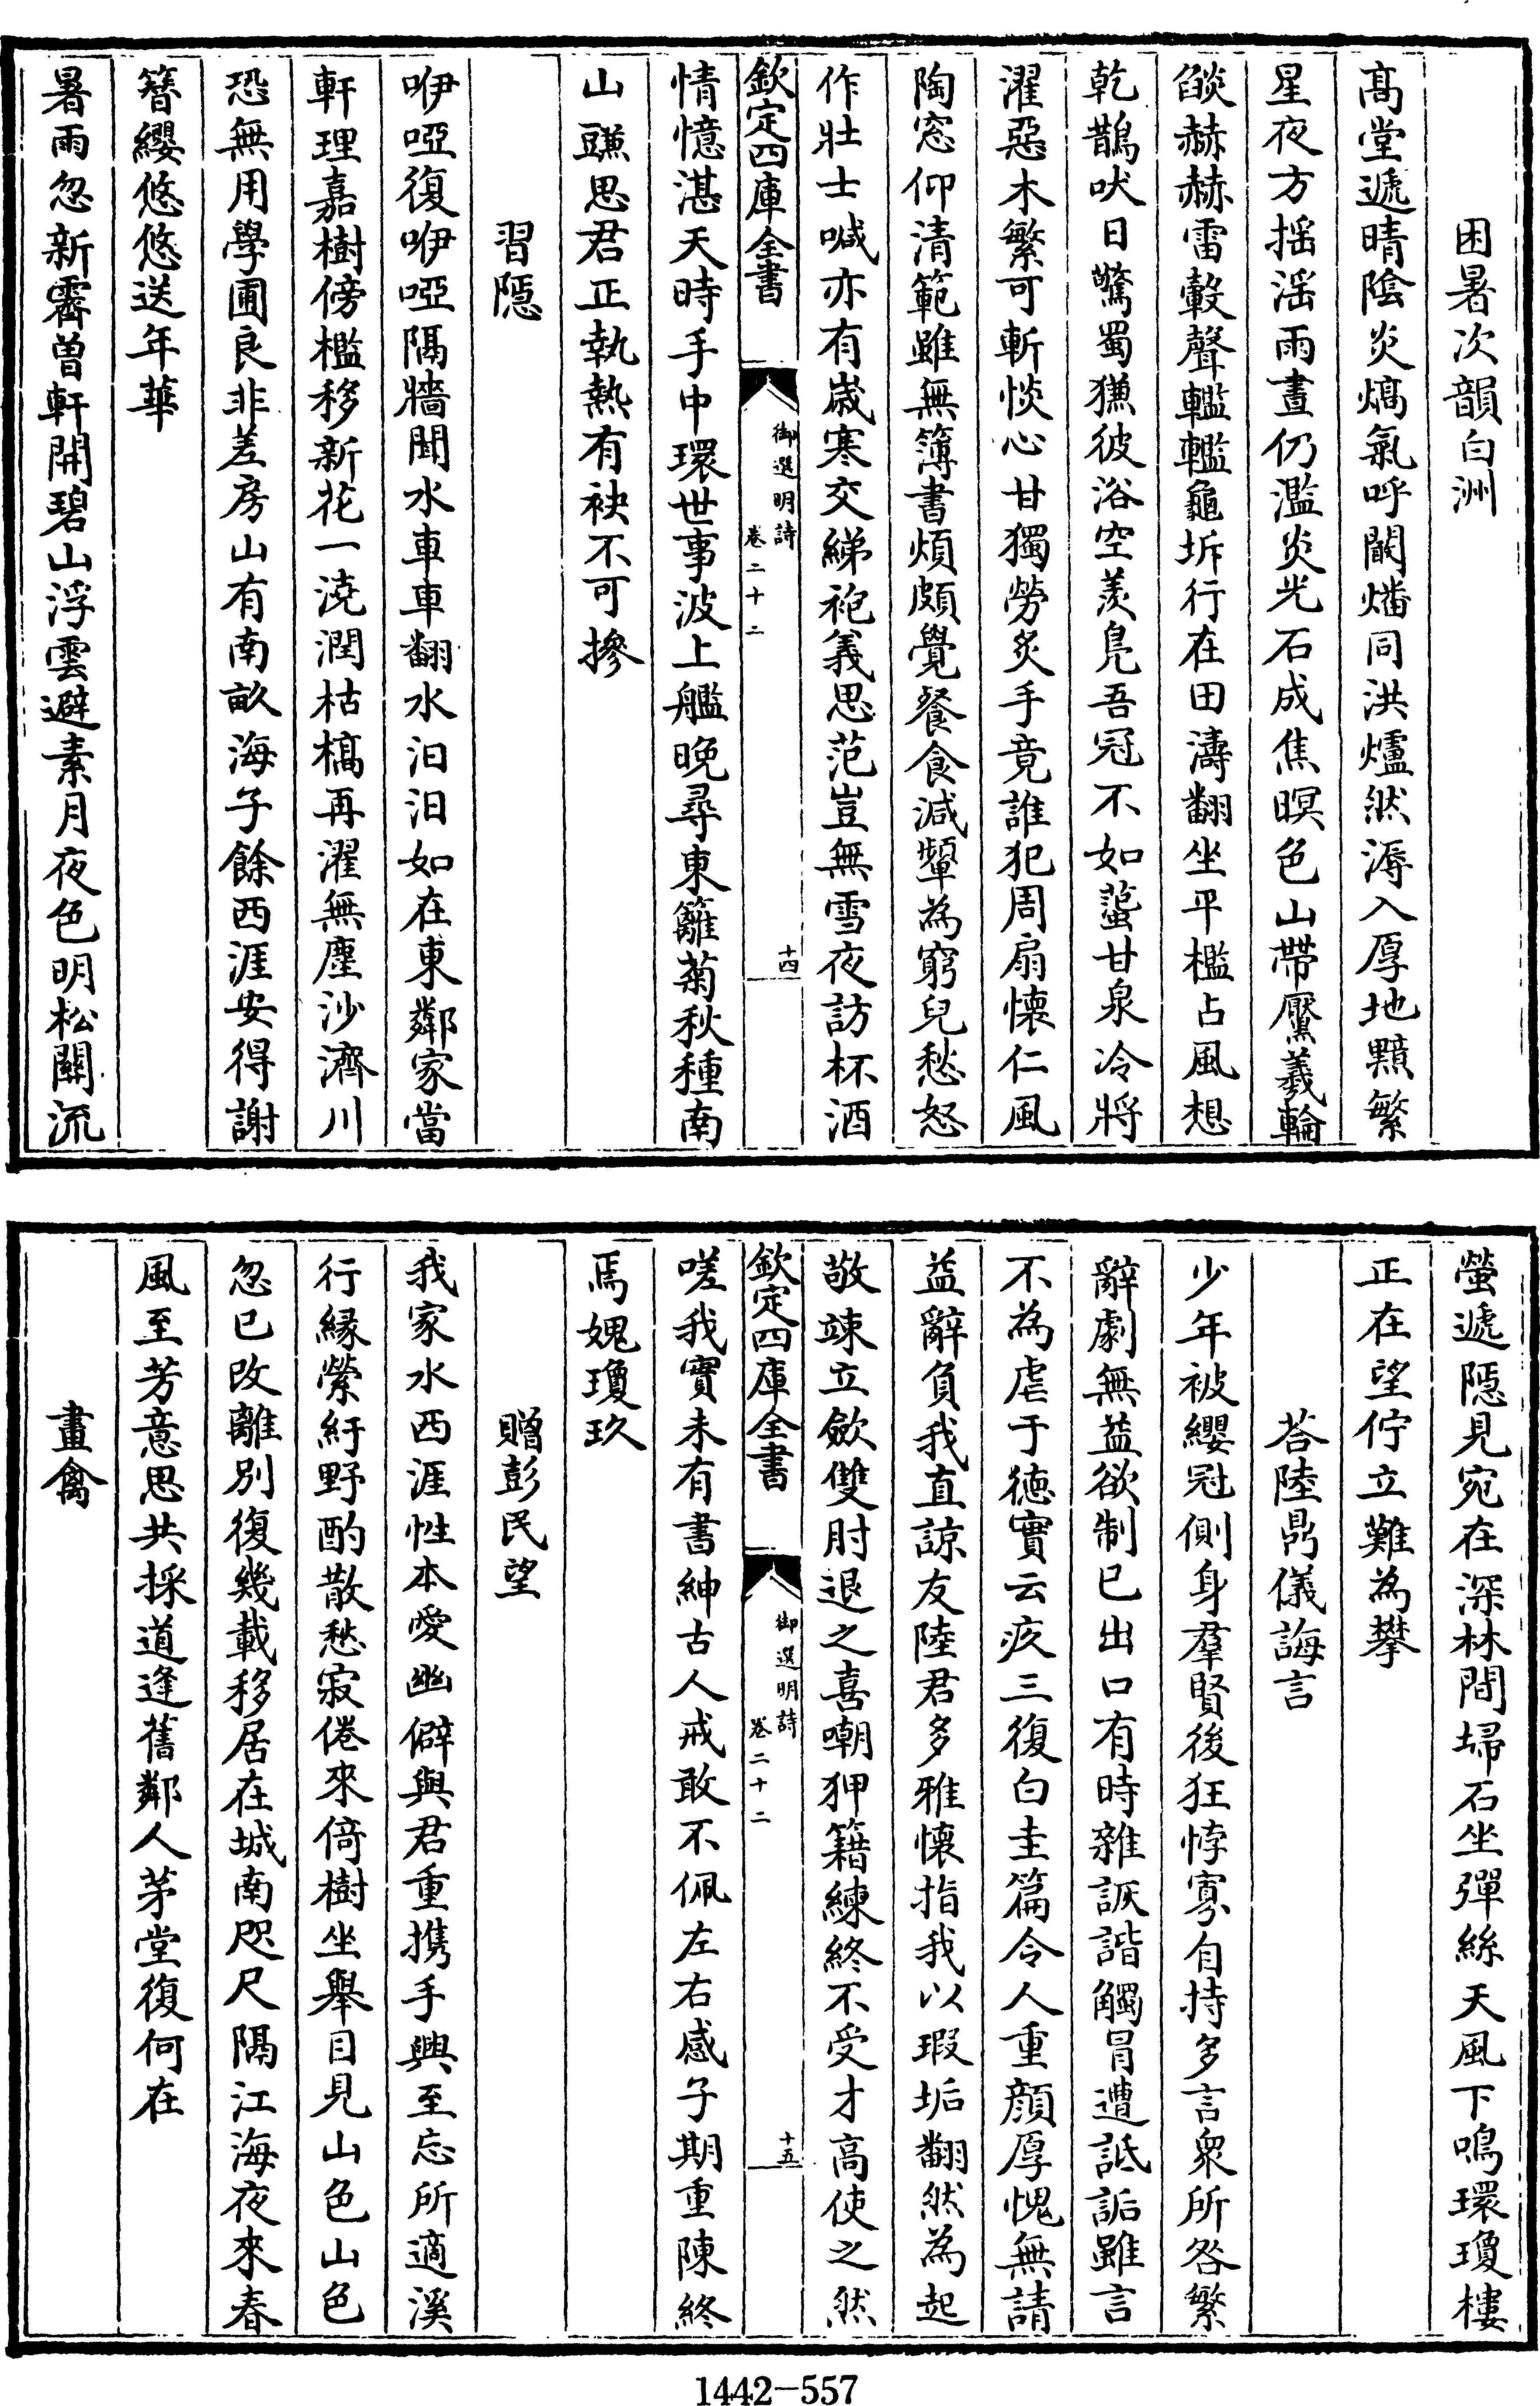 困暑次韻白洲
高堂遞晴陰炎熇氣呼闞燔同洪爐然溽入厚地黷繁
星夜方揺滛雨晝仍濫炎光石成焦暝色山帶黶羲輪
燄赫赫雷轂聲轞轞龜坼行在田濤翻坐平檻占風想
乾鵲吠日驚蜀㺌彼浴空羡鳬吾冠不如蜑甘泉冷將
濯惡木繁可斬惔心甘獨勞炙手竟誰犯周扇懷仁風
陶窓仰清範雖無簿書煩頗覺餐食減顰為窮兒愁怒
作壯士喊亦有嵗寒交綈袍義思范豈無雪夜訪杯酒
欽定四庫全書
御選明詩
卷二十二
十四
情憶湛天時手中環世事波上艦晚尋東籬菊秋種南
山豏思君正執熱有袂不可摻
習隱
咿啞復咿啞隔牆聞水車車翻水汩汩如在東鄰家當
軒理嘉樹傍檻移新花一澆潤枯槁再濯無塵沙濟川
恐無用學圃良非差房山有南畝海子餘西涯安得謝
簪纓悠悠送年華
暑雨忽新霽曽軒開碧山浮雲避素月夜色明松關流
螢遞隱見宛在深林間埽石坐彈絲天風下鳴環瓊樓
正在望佇立難為攀
荅陸鼎儀誨言
少年被纓冠側身羣賢後狂悖寡自持多言衆所咎繁
辭劇無益欲制已出口有時雜詼諧觸冒遭詆詬雖言
不為虐于德實云疚三復白圭篇令人重顔厚愧無請
益辭負我直諒友陸君多雅懷指我以瑕垢翻然為起
敬竦立歛雙肘退之喜嘲狎籍練終不受才高使之然
欽定四庫全書
御選明詩
卷二十二
十五
嗟我實未有書紳古人戒敢不佩左右感子期重陳終
焉媿瓊玖
贈彭民望
我家水西涯性本愛幽僻與君重携手興至忘所適溪
行縁縈紆野酌散愁寂倦來倚樹坐舉目見山色山色
忽已改離別復幾載移居在城南咫尺隔江海夜來春
風至芳意思共採道逢舊鄰人茅堂復何在
畫禽
1442-557